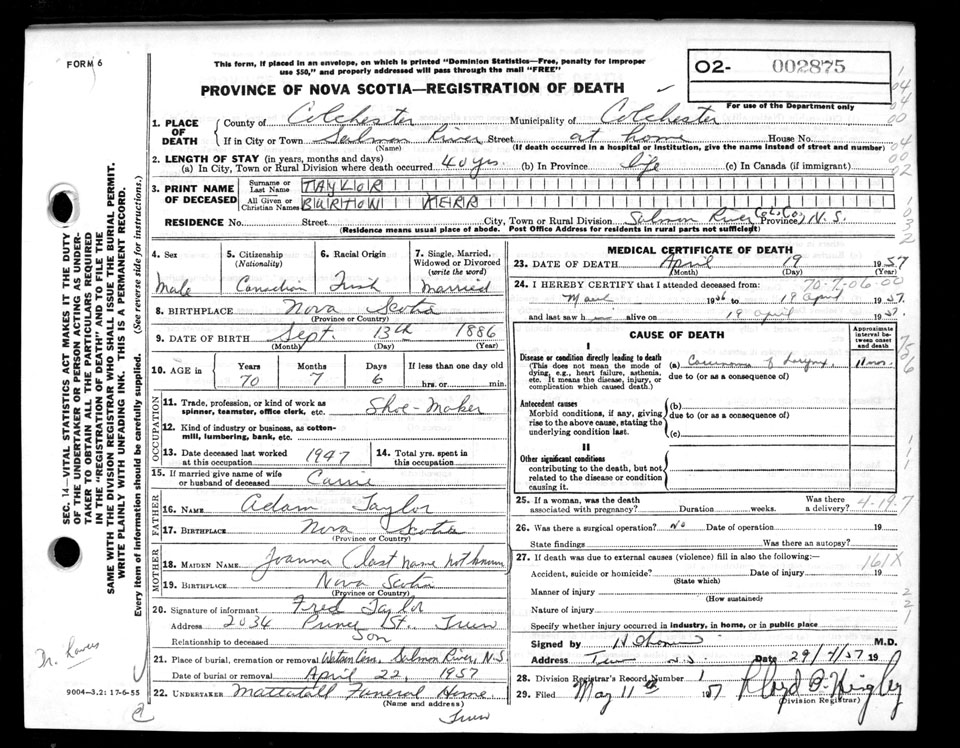 FORM 6
This form, if placed in an envelope, on which is printed "Dominion Statistics—Free, penalty for improper
use $50," and properly addressed will pass through the mail "FREE"
O2- 002875
PROVINCE OF NOVA SCOTIA—REGISTRATION OF DEATH
For use of the Department only
1. PLACE OF DEATH
County of Colchester Municipality of Colchester
If in City or Town Salmon River Street at home House No.
(Name) (If death occurred in a hospital or institution, give the name instead of street and number)
2. LENGTH OF STAY (in years, months and days)
(a) In City, Town or Rural Division where death occurred 40 yrs. (b) In Province life (c) In Canada (if immigrant)
3. PRINT NAME OF DECEASED
Surname or Last Name TAYLOR
All Given or Christian Names BURTON KERR
RESIDENCE No. Street City, Town or Rural Division Salmon River Col. Co. Province N.S.
(Residence means usual place of abode. Post Office Address for residents in rural parts not sufficient)
4. Sex
Male
5. Citizenship
(Nationality)
Canadian
6. Racial Origin
Irish
7. Single, Married,
Widowed or Divorced
(write the word)
Married
8. BIRTHPLACE Nova Scotia
(Province or Country)
9. DATE OF BIRTH Sept. 13th 1886
(Month) (Day) (Year)
10. AGE IN
Years 70
Months 7
Days 6
If less than one day old
hrs. or min.
OCCUPATION
11. Trade, profession, or kind of work as
spinner, teamster, office clerk, etc. Shoe-Maker
12. Kind of industry or business, as cotton-
mill, lumbering, bank, etc.
13. Date deceased last worked
at this occupation 1947
14. Total yrs. spent in
this occupation
15. If married give name of wife
or husband of deceased Carrie
FATHER
16. NAME Adam Taylor
17. BIRTHPLACE Nova Scotia
(Province or Country)
MOTHER
18. MAIDEN NAME Joanna (last name not known
19. BIRTHPLACE Nova Scotia
(Province or Country)
20. Signature of informant Fred Taylor
Address 2034 Prince St. Truro
Relationship to deceased Son
21. Place of burial, cremation or removal Watson Cem. Salmon River, N.S.
Date of burial or removal April 22, 1957
22. UNDERTAKER Mattatall Funeral Home
(Name and address)
Truro
MEDICAL CERTIFICATE OF DEATH
23. DATE OF DEATH April 19 1957
(Month) (Day) (Year)
70-7-06-00
24. I HEREBY CERTIFY that I attended deceased from:
1956 to 19 April 1957.
and last saw h im alive on 19 April 1957.
CAUSE OF DEATH
Approximate
interval between
onset
and death
I
Disease or condition directly leading to death
(This does not mean the mode of
dying, e.g., heart failure, asthenia,
etc. It means the disease, injury, or
complication which caused death.)
(a) Carcinoma of Larynx 11 mos.
due to (or as a consequence of)
Antecedent causes
Morbid conditions, if any, giving
rise to the above cause, stating the
underlying condition last.
(b)
due to (or as a consequence of)
(c)
II
Other significant conditions
contributing to the death, but not
related to the disease or condition
causing it.
25. If a woman, was the death
associated with pregnancy? Duration weeks. Was there
a delivery?
4-19-7
26. Was there a surgical operation? No Date of operation 19
State findings Was there an autopsy?
27. If death was due to external causes (violence) fill in also the following:
161X
Accident, suicide or homicide? Date of injury 19
(State which)
Manner of injury
(How sustained)
Nature of injury
Specify whether injury occurred in industry, in home, or in public place
Signed by M.D.
Address Truro N.S. Date 29/4/57 19
28. Division Registrar's Record Number 1
29. Filed May 11th 1957 Lloyd
(Division Registrar)
SEC. 14—VITAL STATISTICS ACT MAKES IT THE DUTY
OF THE UNDERTAKER OR PERSON ACTING AS UNDER-
TAKER TO OBTAIN ALL THE PARTICULARS REQUIRED
IN THE "REGISTRATION OF DEATH" AND TO FILE THE
SAME WITH THE DIVISION REGISTRAR WHO SHALL ISSUE THE BURIAL PERMIT.
WRITE PLAINLY WITH UNFADING INK. THIS IS A PERMANENT RECORD.
Every item of information should be carefully supplied. (See reverse side for instructions.)
9004-3.2: 17-6-55